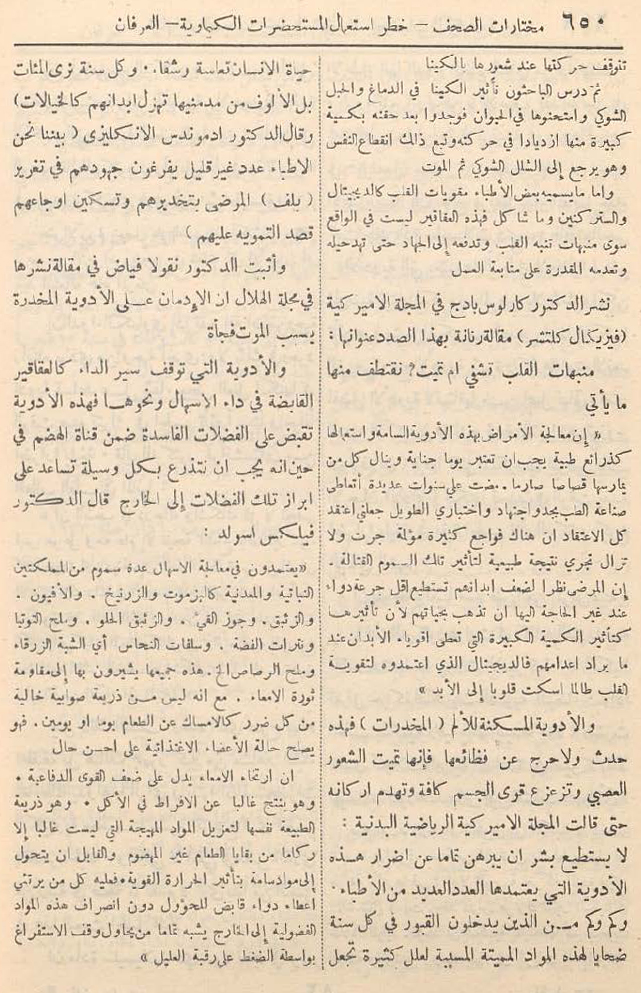 ٦٥٠ مختارات الصحف — خطر استعمال المستحضرات الكيماوية — العرفان
تتوقف حركتها عند شعورها بالكينا
ثم درس الباحثون تأثير الكينا في الدماغ والحبل
الشوكي وامتحنوها في الحيوان فوجدوا بعد حقنه بكمية
كبيرة منها ازديادا في حركته وتبع ذلك انقطاع النفس
وهو يرجع إلى الشلل الشوكي ثم الموت
واما ما يسميه بعض الأطباء مقويات القلب كالديجيتال
والستركنين وما شاكل فهذه العقاقير ليست في الواقع
سوى منبهات تنبه القلب وتدفعه إلى الجهاد حتى تهد حيله
وتعدمه المقدرة على متابعة العمل
نشر الدكتور كارلوس بادج في المجلة الاميركية
(فيزيكال كلتشر) مقالة رنانة بهذا الصدد عنوانها :
منبهات القلب تشفي ام تميت؟ نقتطف منها
ما يأتي
« إن معالجة الأمراض بهذه الأدوية السامة واستعمالها
كذرائع طبية يجب ان تعتبر يوما جناية وينال كل من
يمارسها قصاصا صارما . مضت علي سنوات عديدة أتعاطى
صناعة الطب بجد واجتهاد واختباري الطويل جعلني اعتقد
كل الاعتقاد ان هناك فواجع كثيرة مؤلمة جرت ولا
تزال تجري نتيجة طبيعية لتأثير تلك السموم القتالة .
إن المرضى نظرا لضعف ابدانهم تستطيع اقل جرعة دواء
عند غير الحاجة اليها ان تذهب بحياتهم لأن تأثيرها
كتأثير الكمية الكبيرة التي تعطى اقوياء الأبدان عند
ما يراد اعدامهم فالديجيتال الذي اعتمدوه لتقوية
القلب طالما اسكت قلوبا إلى الأبد »
والأدوية المسكنة للألم (المخدرات) فهذه
حدث ولا حرج عن فظائعها فإنها تميت الشعور
العصبي وتزعزع قوى الجسم كافة وتهدم اركانه
حتى قالت المجلة الاميركية الرياضية البدنية :
لا يستطيع بشر ان يبرهن تماما عن اضرار هذه
الأدوية التي يعتمدها العدد العديد من الأطباء .
وكم وكم من الذين يدخلون القبور في كل سنة
ضحايا لهذه المواد المميتة المسببة لعلل كثيرة تجعل
حياة الانسان تعاسة وشقاء . وكل سنة نرى المئات
بل الألوف من مدمنيها تهزل ابدانهم كالخيالات)
وقال الدكتور ادموندس الانكليزى (بيننا نحن
الاطباء عدد غير قليل يفرغون جهودهم في تغرير
(بلف) المرضى بتخديرهم وتسكين اوجاعهم
قصد التمويه عليهم)
وأثبت الدكتور نقولا فياض في مقالة نشرها
في مجلة الهلال ان الإدمان على الأدوية المخدرة
يسبب الموت فجأة
والأدوية التي توقف سير الداء كالعقاقير
القابضة في داء الإسهال ونحوها فهذه الأدوية
تقبض على الفضلات الفاسدة ضمن قناة الهضم في
حين انه يجب ان نتذرع بكل وسيلة تساعد على
ابراز تلك الفضلات إلى الخارج قال الدكتور
فيلكس اسولد :
«يعتمدون في معالجة الاسهال عدة سموم من المملكتين
النباتية والمعدنية كالبزموت والزرنيخ . والأفيون .
والزئبق . وجوز القيء . والزئبق الحلو . وملح التوتيا
ونترات الفضة . وسلفات النحاس أي الشبة الزرقاء
وملح الرصاص الخ . هذه جميعها يشيرون بها إلى مقاومة
ثورة الامعاء . مع انه ليس من ذريعة صوابية خالية
من كل ضرر كالامساك عن الطعام يوما او يومين . فهو
يصلح حالة الأعضاء الاغتذائية على احسن حال
ان ارتخاء الامعاء يدل على ضعف القوى الدفاعية .
وهو ينتج غالبا عن الافراط في الأكل . وهو ذريعة
الطبيعة نفسها لتعزيل المواد المهيجة التي ليست غالبا إلا
ركاما من بقايا الطعام غير المهضوم والقابل ان يتحول
إلى مواد سامة بتأثير الحرارة القوية . فعليه كل من يرتئي
اعطاء دواء قابض للحؤول دون انصراف هذه المواد
الفضولية إلى الخارج يشبه تماما من يحاول وقف الاستفراغ
بواسطة الضغط على رقبة العليل »